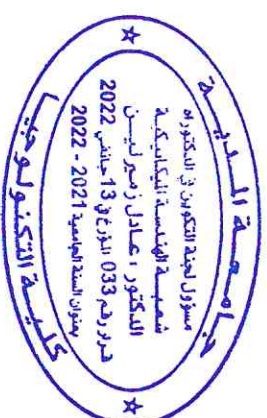 جامعة المدية
مسؤول لجنة التكوين في الدكتوراه
شعبة الهندسة الميكانيكية
الدكتور : عادل زميرليـــن
قرار رقم 033 المؤرخ في 13 جانفي 2022
بعنوان السنة الجامعية 2021 - 2022
كلية التكنولوجيا